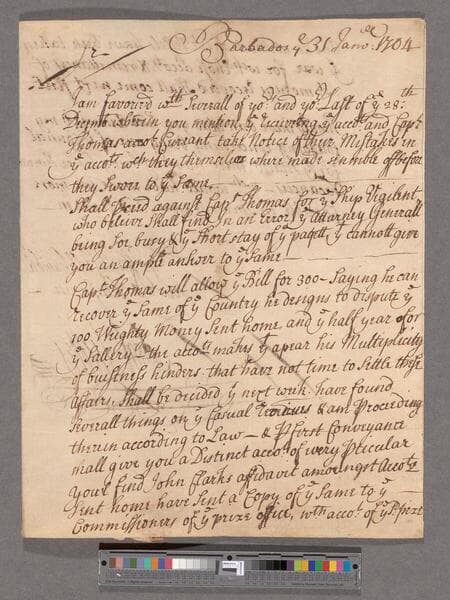 Barbados ye 31 Janry: 1704
Sr
I am favored wth Severall of yor and yor Last of ye 28th
Decemr wherein you mention ye receiving ye accots and Capt
Thomas accot Currant take Notice of their Mistakes in
ye accots wch they themselves where made sensible off before
they Sworn to ye Same
Shall Proceed against Capt Thomas for ye Ship Vigilent
who believe Shall find in an Error, ye Attorney Generall
being Soe busy & ye Short stay of ye packett yt cannott give
you an ample answer to ye Same
Capt Thomas will allow ye Bill for 300 - Saying he can
recover ye Same of ye Country he designs to dispute ye
100 Weighty Money Sent home and ye half year of or
ye Sallery - the accots makes yt apear his Multiplicity
of buisiness hinders that have not time to Settle these
affairs, Shall be decided ye next week have found
Severall things on ye Casual & am Proceeding
therein according to Law - & P first Conveyance
shall give you a Distinct accot of every Pticular
Youl find John Clarks affidavit amongst Accots
Sent home have Sent a Copy of ye Same to ye
Commissioners of ye prize office, wth accot of ye